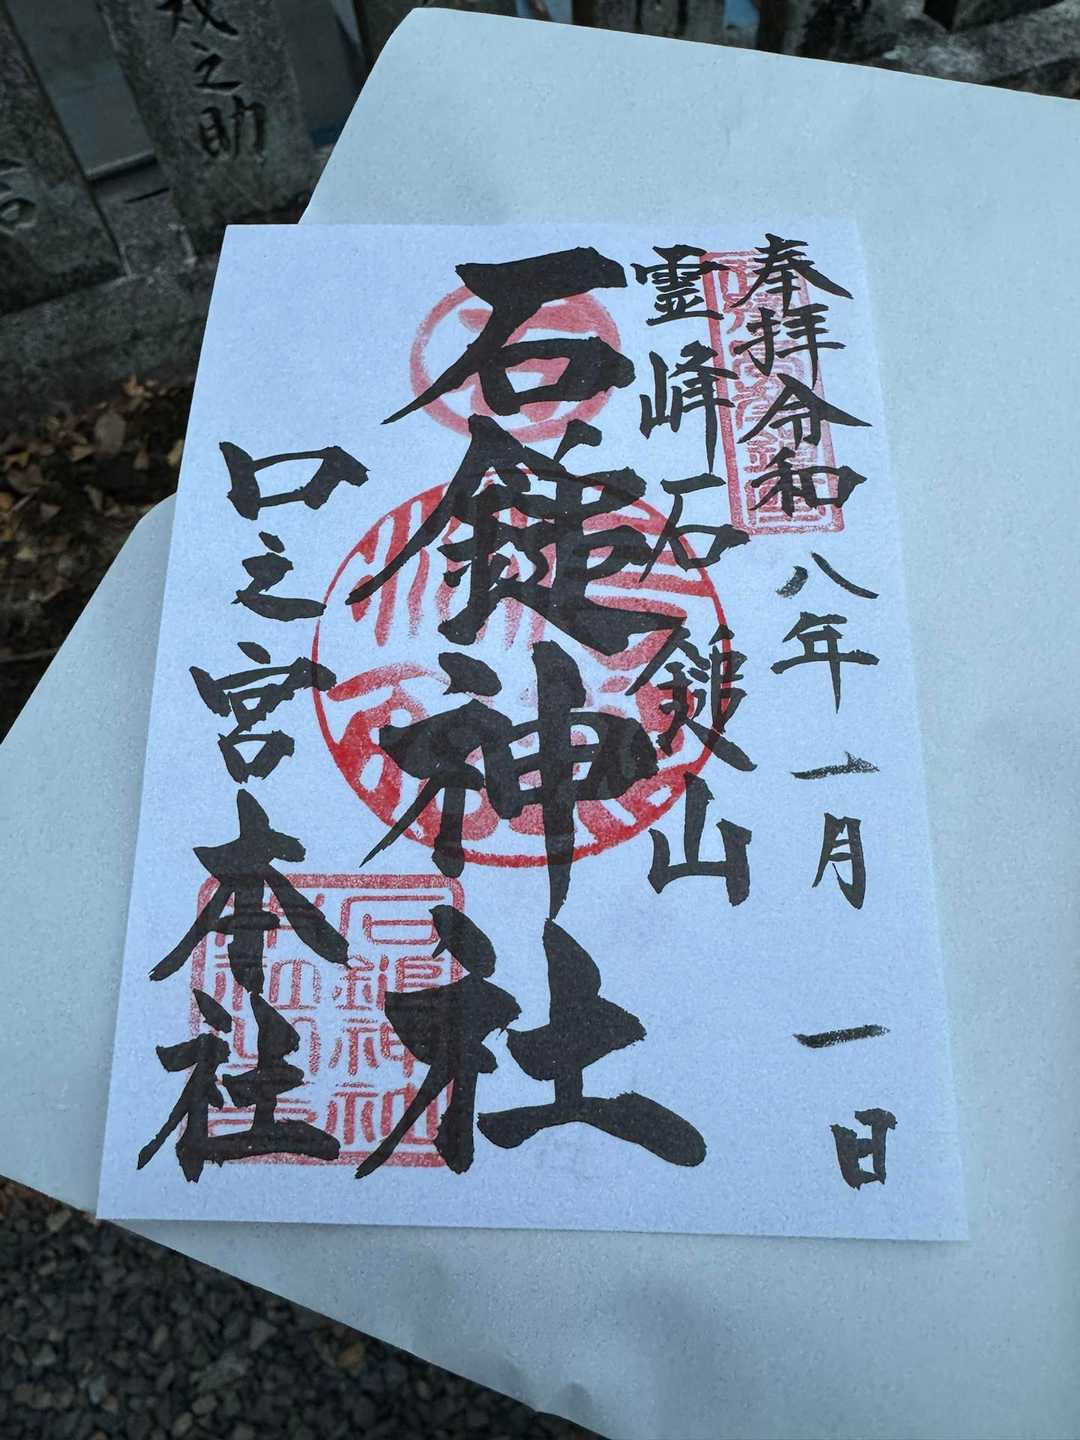 奉拝令和八年一月一日
霊峰石鎚山
石鎚神社
口之宮本社
之助